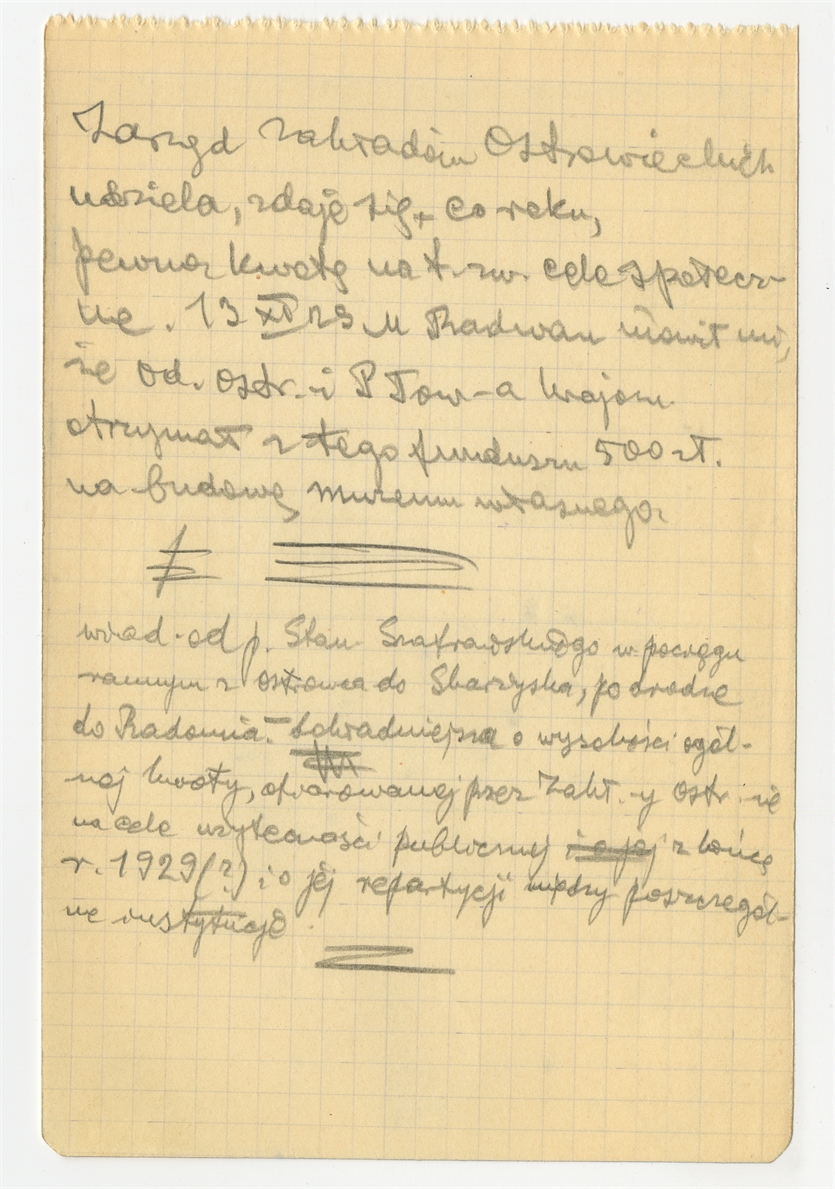 Zarząd Zakładów Ostrowieckich
udziela, zdaje się, co roku,
pewną kwotę na t. zw. cele społecz-
ne. 13 XI 29 M Radwan mówił mi,
że Od. Ostr.-i P Tow-a Krajozn.
otrzymał z tego funduszu 500 zł.
na budowę muzeum własnego.
wiad. od p. Stan. Szafrańskiego w pociągu
rannym z Ostrowca do Skarżyska, po drodze
do Radomia. – Dokładniejsza o wysokości ogól-
nej kwoty, ofiarowanej przez Zakł.-y Ostr.-ie
na cele użyteczności publicznej i o jej z końcem
r. 1929(?) i o jej repartycji między poszczegól-
ne instytucje